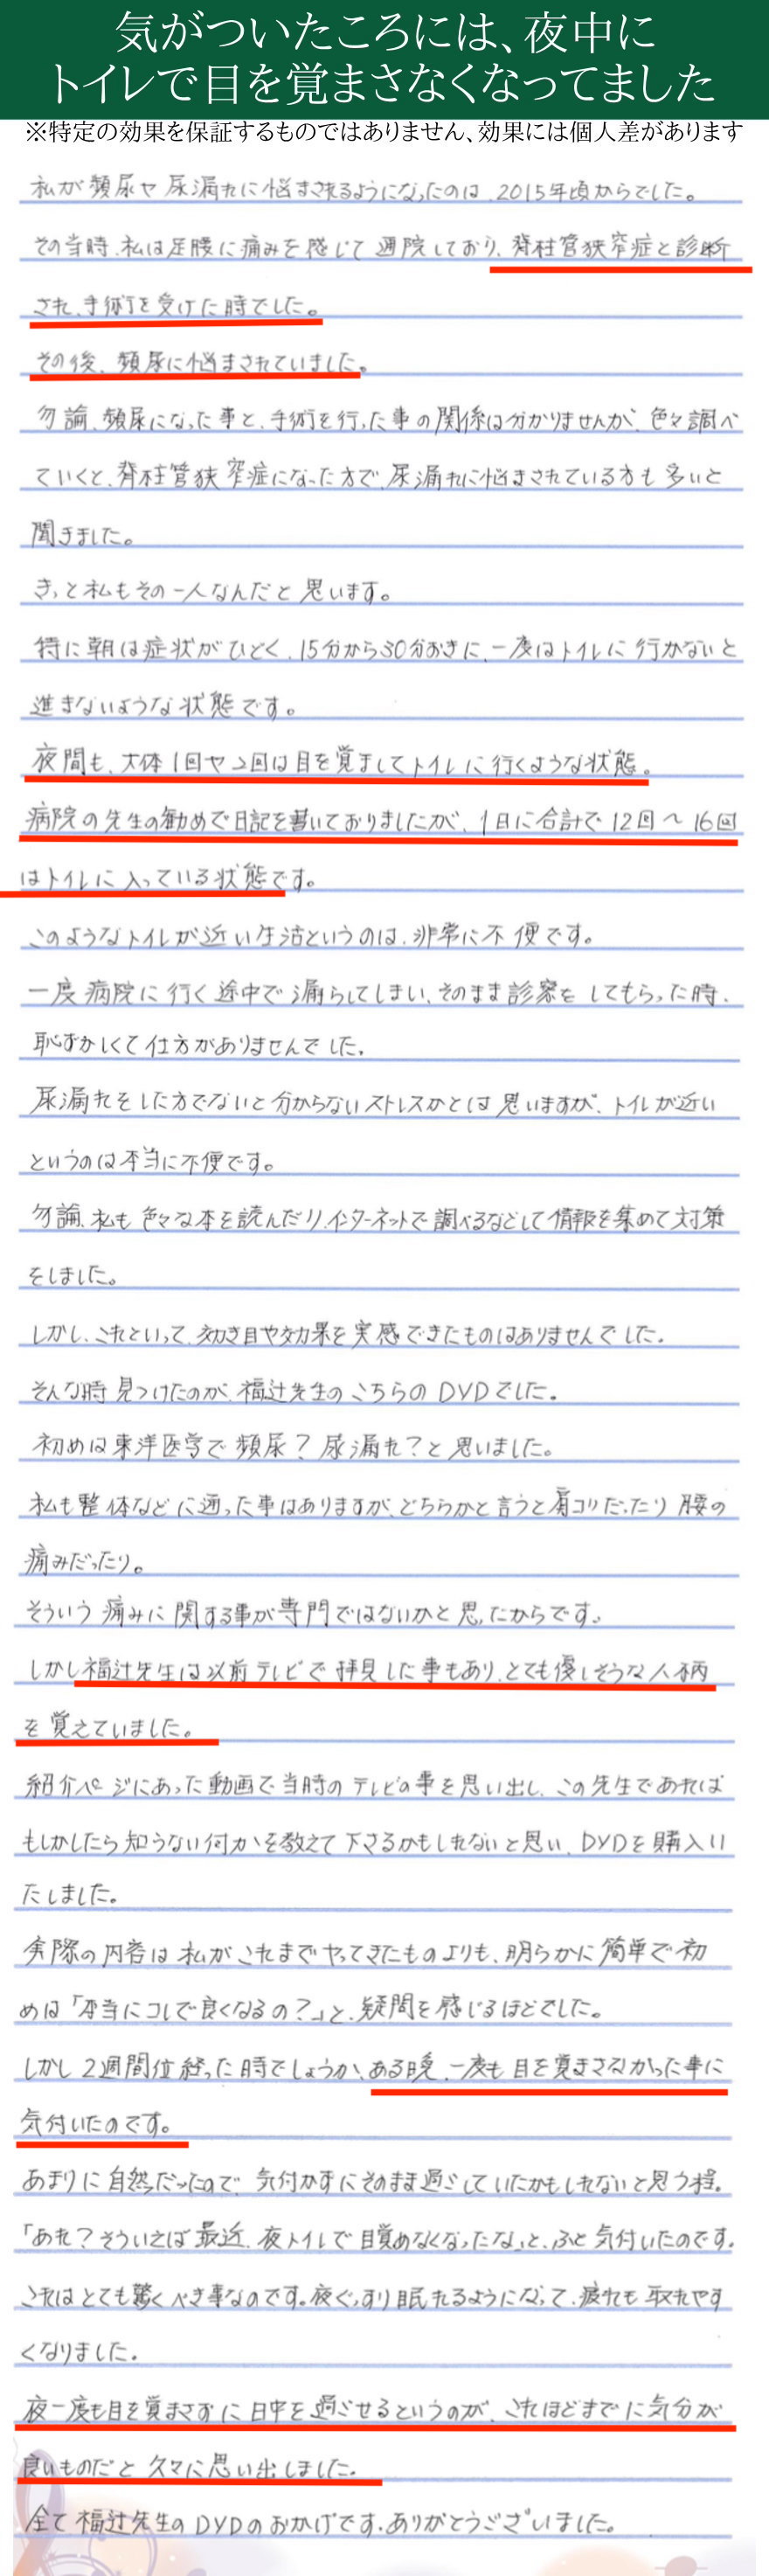 気がついたころには、夜中に
トイレで目を覚まさなくなってました
※特定の効果を保証するものではありません、効果には個人差があります
私が頻尿や尿漏れに悩まされるようになったのは、2015年頃からでした。
その当時、私は足腰に痛みを感じて通院しており、脊柱管狭窄症と診断
され、手術を受けた時でした。
その後、頻尿に悩まされていました。
勿論、頻尿になった事と、手術を行った事の関係は分かりませんが、色々調べ
ていくと、脊柱管狭窄症になった方で、尿漏れに悩まされている方も多いと
聞きました。
きっと私もその一人なんだと思います。
特に朝は症状がひどく、15分から30分おきに、一度はトイレに行かないと
進まないような状態です。
夜間も、大体1回や2回は目を覚ましてトイレに行くような状態。
病院の先生の勧めで日記を書いておりましたが、1日に合計で12回〜16回
はトイレに入っている状態です。
このようなトイレが近い生活というのは、非常に不便です。
一度病院に行く途中で漏らしてしまい、そのまま診察をしてもらった時、
恥ずかしくて仕方がありませんでした。
尿漏れをした方でないと分からないストレスかとは思いますが、トイレが近い
というのは本当に不便です。
勿論、私も色々な本を読んだり、インターネットで調べるなどして情報を集めて対策
をしました。
しかし、これといって、効き目や効果を実感できたものはありませんでした。
そんな時見つけたのが、福辻先生のこちらのDVDでした。
初めは東洋医学で頻尿？尿漏れ？と思いました。
私も整体などに通った事はありますが、どちらかと言うと肩コリだったり腰の
痛みだったり。
そういう痛みに関する事が専門ではないかと思ったからです。
しかし福辻先生は以前テレビで拝見した事もあり、とても優しそうな人柄
を覚えていました。
紹介ページにあった動画で当時のテレビの事を思い出し、この先生であれば
もしかしたら知らない何かを教えて下さるかもしれないと思い、DVDを購入い
たしました。
実際の内容は私がこれまでやってきたものよりも、明らかに簡単で初
めは「本当にコレで良くなるの？」と、疑問を感じるほどでした。
しかし2週間位経った時でしょうか、ある晩、一度も目を覚まさなかった事に
気付いたのです。
あまりに自然だったので、気付かずにそのまま過ごしていたかもしれないと思う程。
「あれ？そういえば最近、夜トイレで目覚めなくなったな」と、ふと気付いたのです。
これはとても驚くべき事なのです。夜ぐっすり眠れるようになって、疲れも取れやす
くなりました。
夜一度も目を覚まさずに日中を過ごせるというのが、これほどまでに気分が
良いものだと久々に思い出しました。
全て福辻先生のDVDのおかげです。ありがとうございました。